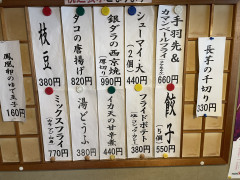 手羽先&
カマンベールフライ
660円
長芋の千切り
330円
シューマイ大
(2個)
440円
銀ダラの西京焼
(厚切り)
990円
タコの唐揚げ
820円
枝豆
380円
鳳凰卵のゆで玉子
160円
餃子
(5個)
550円
フライドポテト
380円
イカ天の甘辛煮
440円
湯どうふ
380円
ミックスフライ
770円